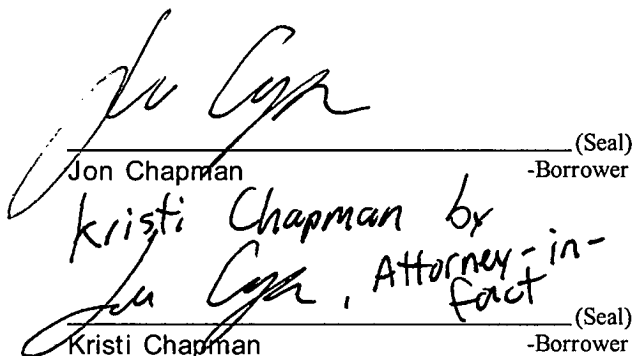 Jon Chapman
(Seal)
Jon Chapman -Borrower
Kristi Chapman by
Jon Chapman, Attorney-in-
fact
(Seal)
Kristi Chapman -Borrower